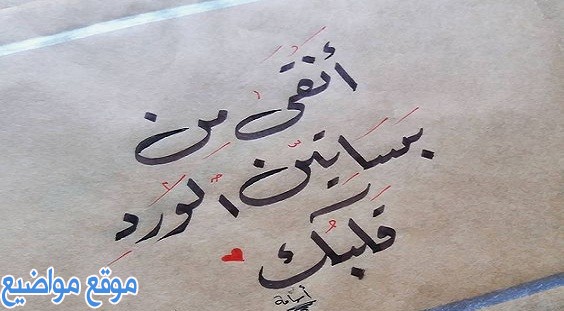 أنقى من
بساتين الورد
قلبك
أسامة
موقع مواضيع